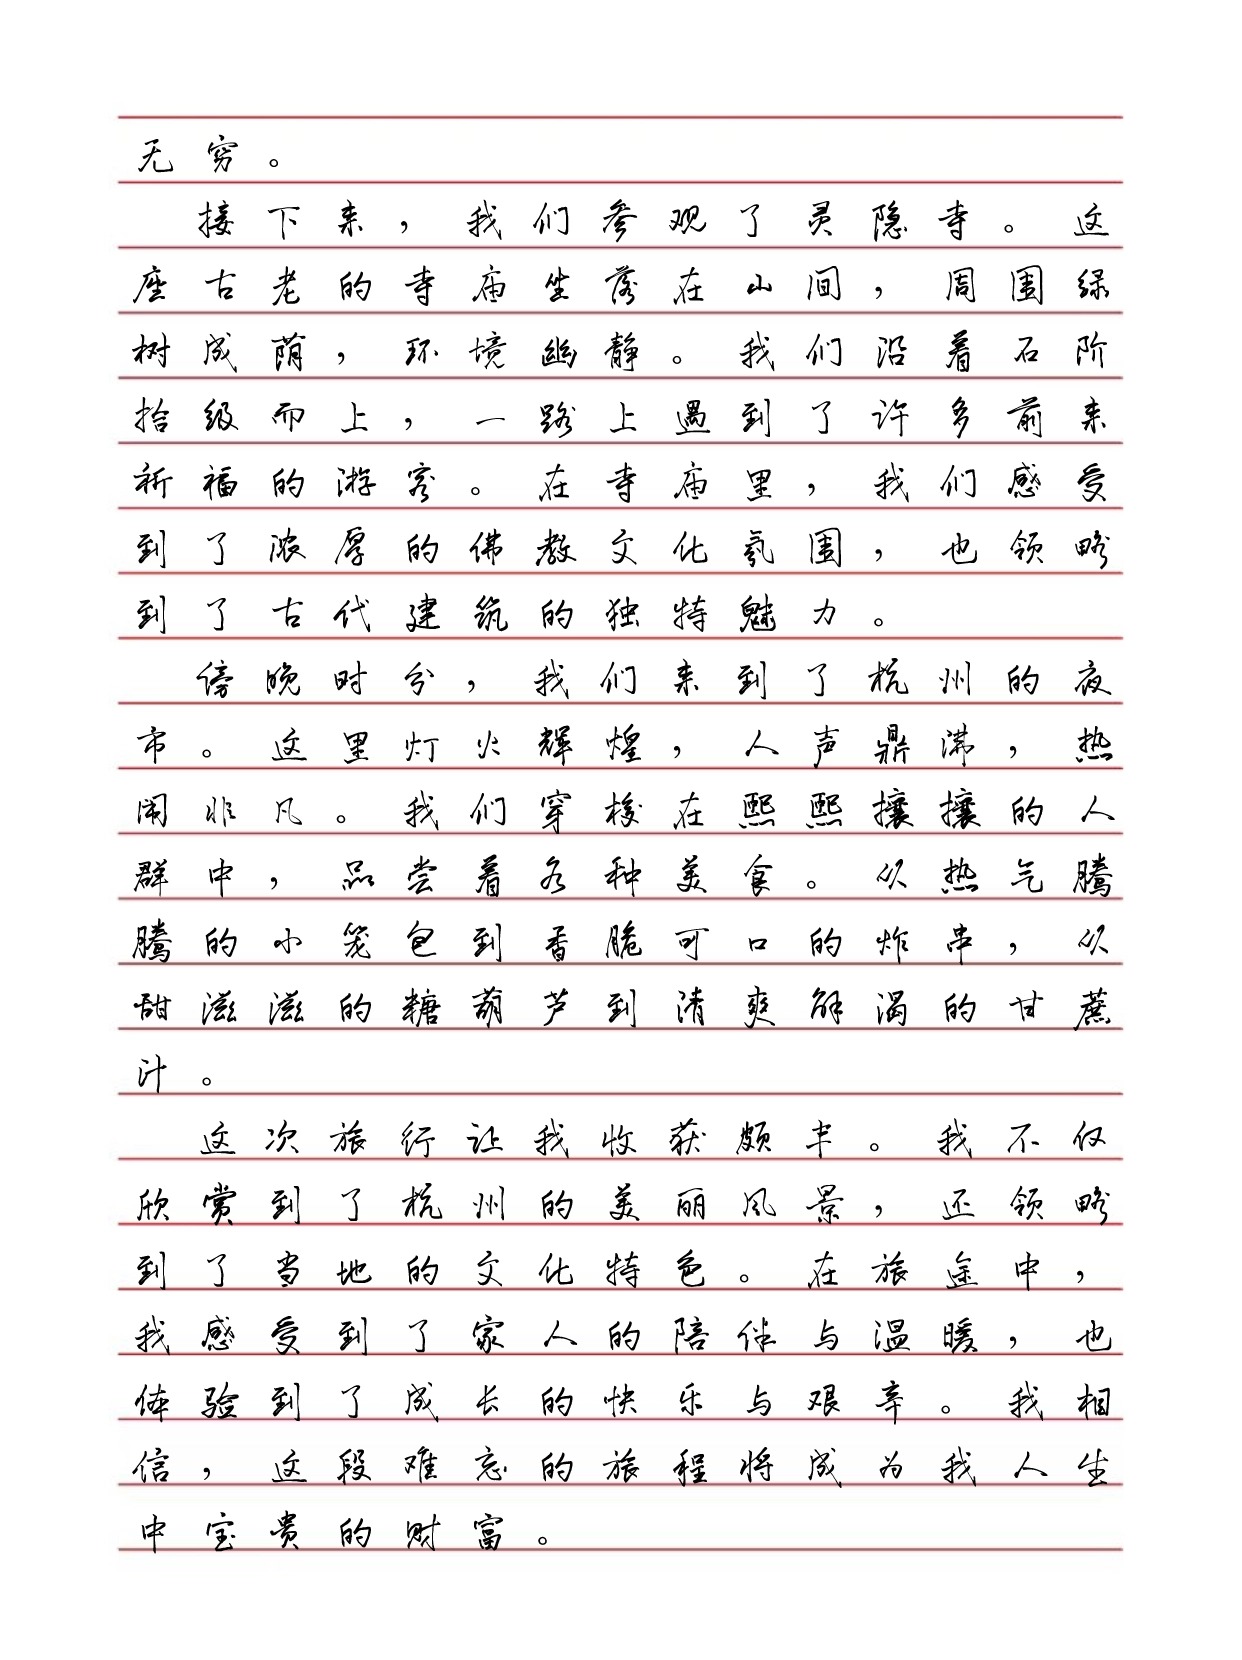 无穷。
接下来，我们参观了灵隐寺。这
座古老的寺庙坐落在山间，周围绿
树成荫，环境幽静。我们沿着石阶
拾级而上，一路上遇到了许多前来
祈福的游客。在寺庙里，我们感受
到了浓厚的佛教文化氛围，也领略
到了古代建筑的独特魅力。
傍晚时分，我们来到了杭州的夜
市。这里灯火辉煌，人声鼎沸，热
闹非凡。我们穿梭在熙熙攘攘的人
群中，品尝着各种美食。从热气腾
腾的小笼包到香脆可口的炸串，从
甜滋滋的糖葫芦到清爽解渴的甘蔗
汁。
这次旅行让我收获颇丰。我不仅
欣赏到了杭州的美丽风景，还领略
到了当地的文化特色。在旅途中，
我感受到了家人的陪伴与温暖，也
体验到了成长的快乐与艰辛。我相
信，这段难忘的旅程将成为我人生
中宝贵的财富。